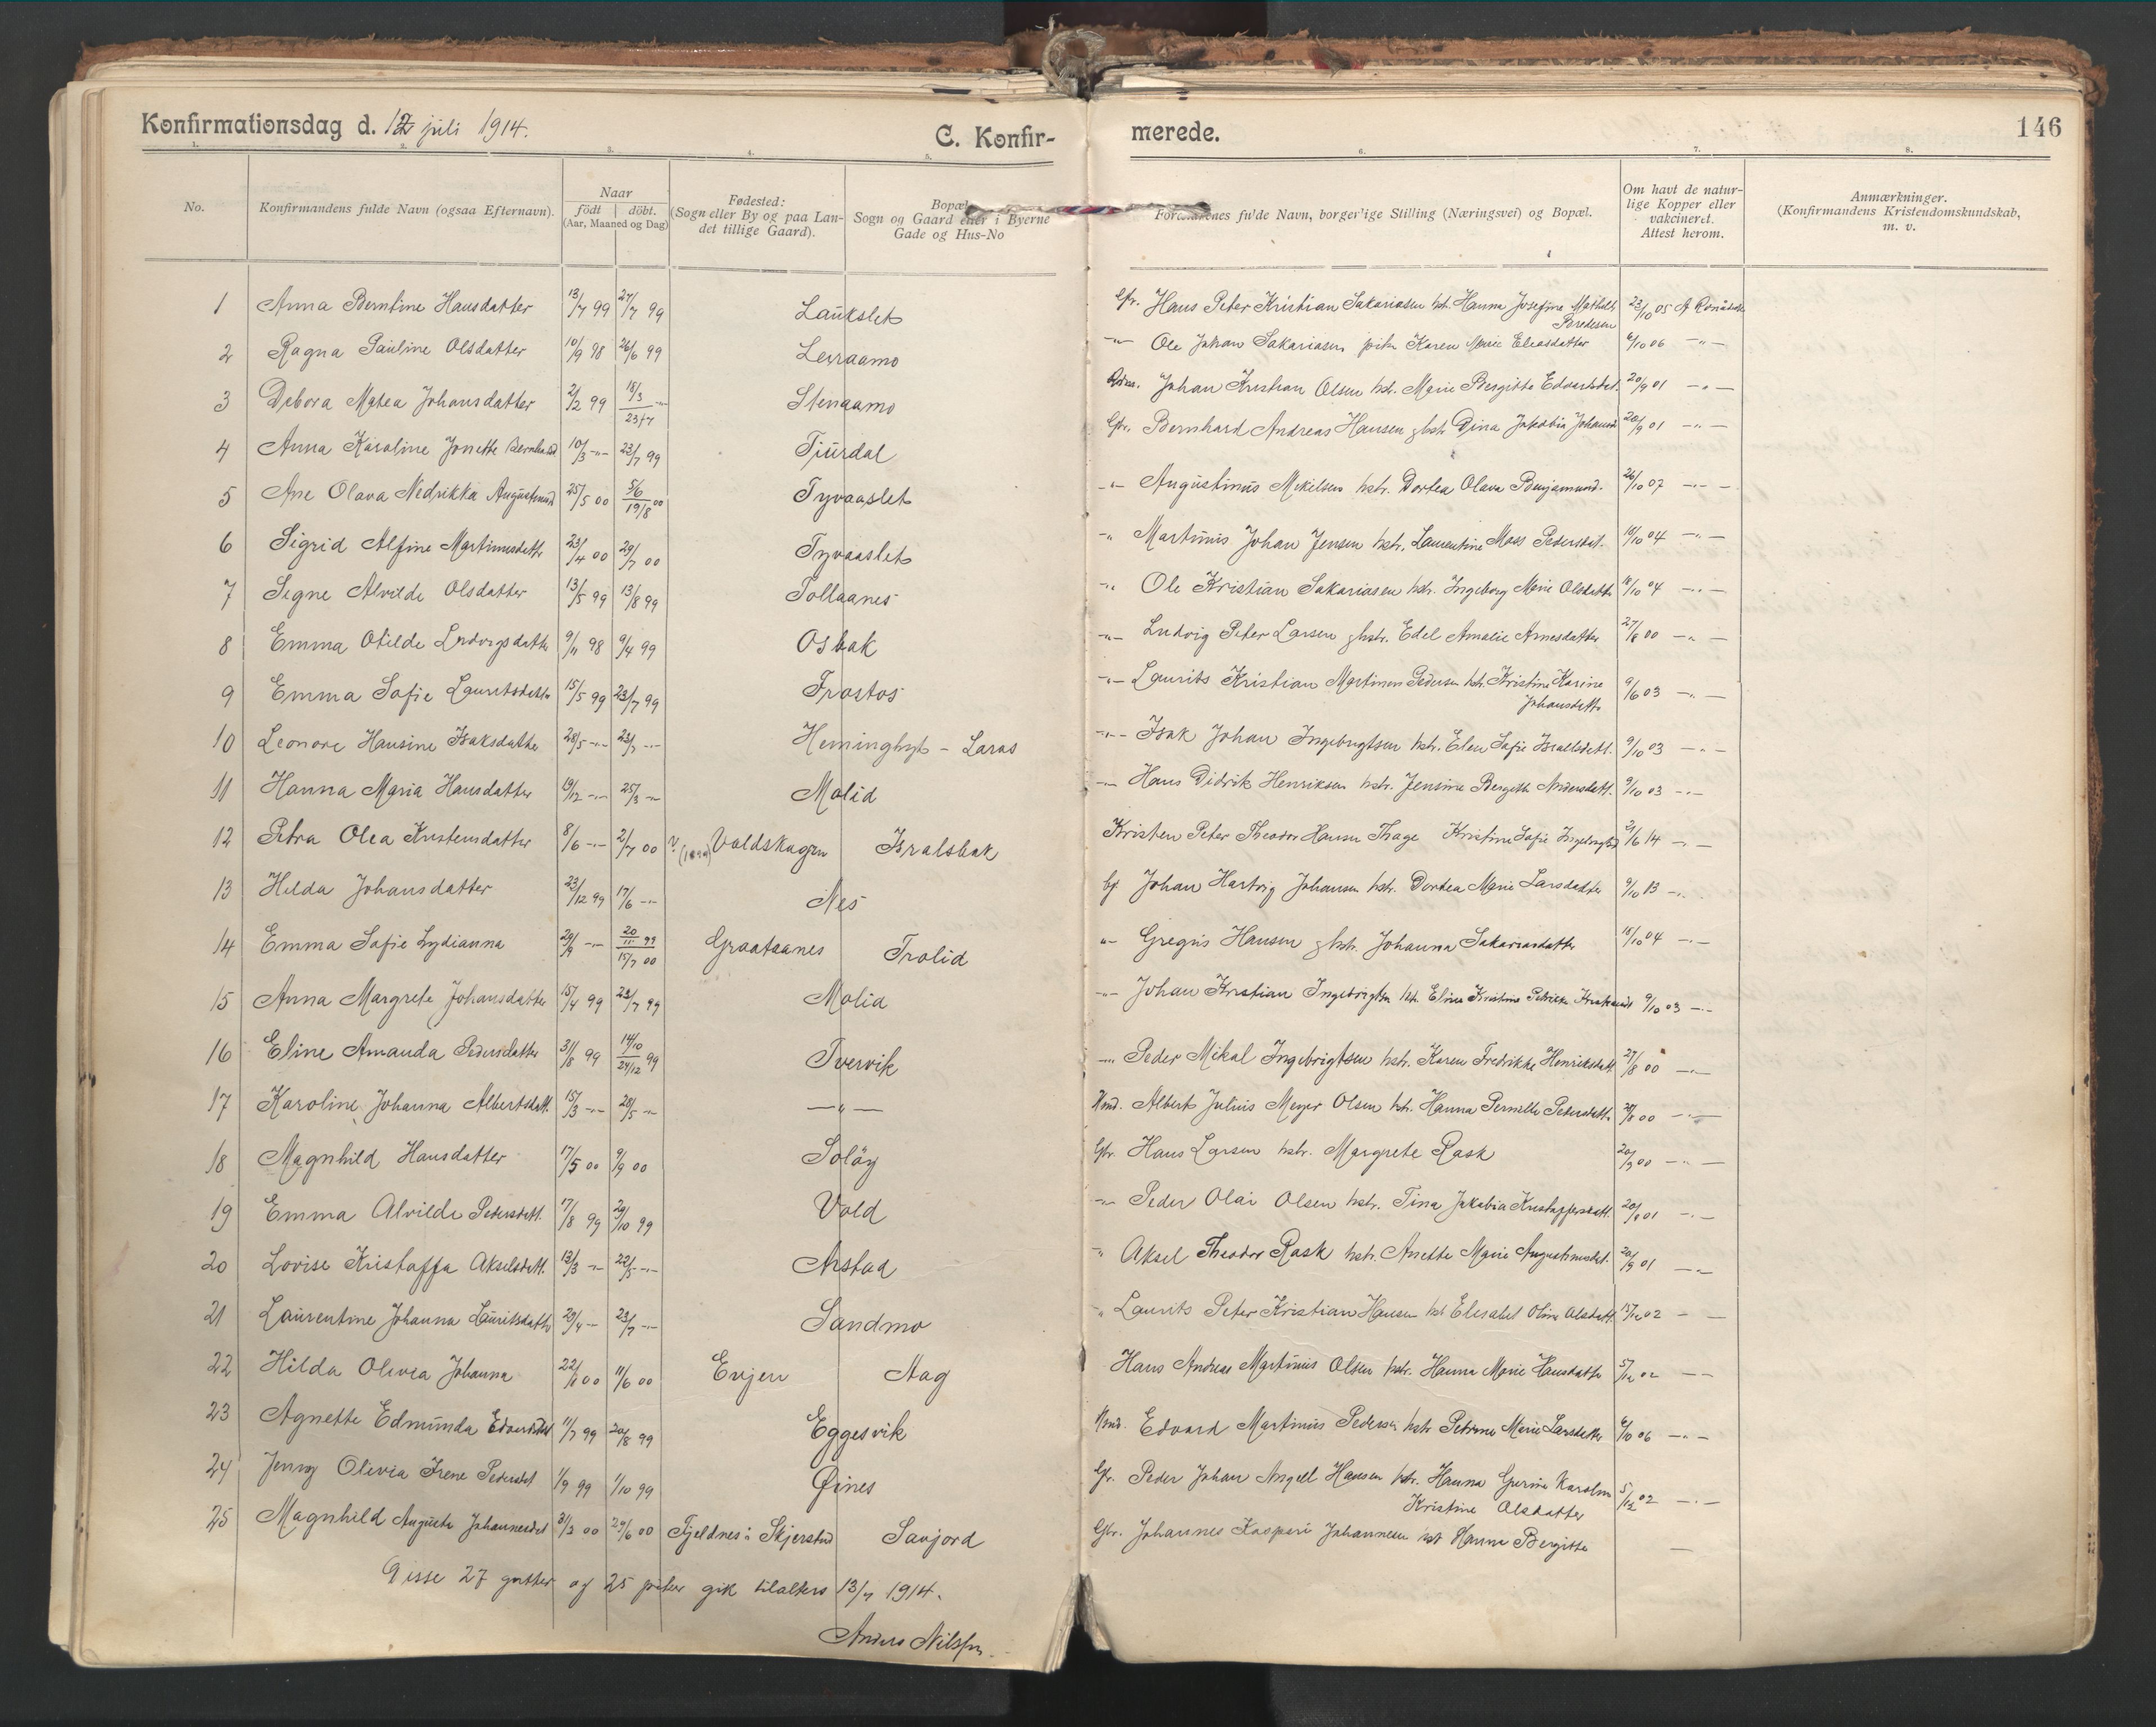 Konfirmationsdag d. 12 juli 1914. C. Konfir- merede. 146
1. 2. 3. 4. 5. 6. 7. 8.
No.
Konfirmandens fulde Navn (ogsaa Efternavn).
Naar
födt döbt.
(Aar, Maaned og Dag)
Fødested:
(Sogn eller By og paa Lan-
det tillige Gaard).
Bopæl
Sogn og Gaard eller i Byerne
Gade og Hus-No
Forældrenes fulde Navn, borgerlige Stilling (Næringsvei) og Bopæl.
Om havt de natur-
lige Kopper eller
vakcineret.
Attest herom.
Anmærkninger.
(Konfirmandens Kristendomskundskab,
m. v.
1 Anna Berntine Hansdatter 13/7 99 27/7 99 Laukslet Gbr. Hans Peter Kristian Sakariasen hstr. Hanna Josefine Mathilde 23/10 05
Bredesen
2 Ragna Pauline Olsdatter 10/9 98 26/6 99 Levraamo -"- Ole Johan Sakariasen pike Karen Marie Eliasdatter 6/10 06 -"-
3 Debora Matea Johansdatter 2/2 99 18/3 -"- 23/7 Stenaamo Johan Kristian Olsen hstr. Marie Bergitte Edvardsdat. 20/9 01 -"-
4 Anna Karoline Jonette Bernhardsd 10/3 -"- 23/7 99 Tjurdal Gbr. Bernhard Andreas Hansen g hstr. Dina Jakobia Johansd 20/9 01 -"-
5 Ane Olava Nedrikka Augustinusd 25/5 00 5/6 19/8 00 Tyvaaslet -"- Augustinus Mikelsen hstr. Dortea Olava Benjaminsd. 26/10 07 -"-
6 Sigrid Alfine Martinusdatter 23/4 00 29/7 00 Tyvaaslet -"- Martinus Johan Jensen hstr. Laurentine Moss Pedersdat. 10/10 04 -"-
7 Signe Alvilde Olsdatter 13/5 99 13/8 99 Tollaanes -"- Ole Kristian Sakariasen hstr. Ingeborg Marie Olsdatter 10/10 04 -"-
8 Emma Otilde Ludvigsdatter 9/11 98 9/4 99 Osbak -"- Ludvig Peter Larsen g hstr. Edel Amalie Arnesdatter 27/8 00 -"-
9 Emma Sofie Lauritsdatter 15/5 99 23/7 99 Frostos -"- Laurits Kristian Martinus Pedersen hstr. Kristine Karine 9/6 03 -"-
Johansdatter
10 Leonore Hansine Isaksdatter 28/5 -"- 23/7 -"- Heminghyt - Laras -"- Isak Johan Ingebrigtsen hstr. Elen Sofie Israelsdatt. 9/10 03 -"-
11 Hanna Maria Hansdatter 19/12 -"- 25/3 -"- Molid -"- Hans Didrik Henriksen hstr. Jensine Bergitte Andersdatt. 9/10 03 -"-
12 Petra Olea Kristensdatter 8/6 -"- 2/7 00 Valdskagen Israelsbak Kristen Peter Theodor Hansen Thage Kristine Sofie Ingebrigtsd 21/6 14 -"-
13 Hilda Johansdatter 23/12 99 17/6 -"- Nes Johan Hartvig Johansen hstr. Dortea Marie Larsdatter 9/10 13 -"-
14 Emma Sofie Lydianna 29/9 -"- 20/11 99 15/7 00 Graataanes Trolid -"- Gregus Hansen g hstr. Johanna Sakariasdatter 10/10 04 -"-
15 Anna Margrete Johansdatter 15/4 99 23/7 99 Molia -"- Johan Kristian Ingebrigtsn hstr. Eline Kristine 9/10 03 -"-
16 Eline Amanda Pedersdatter 31/8 99 14/10 24/12 99 Tvervik -"- Peder Mikal Ingebrigtsen hstr. Karen Fredrikke Henriksdatt 27/8 00 -"-
17 Karoline Johanna Albertsdatt. 15/3 -"- 28/5 -"- -"- Albert Julius Meyer Olsen hstr. Hanna Pernille Pedersdatter 28/8 00 -"-
18 Magnhild Hansdatter 17/5 00 9/9 00 Soløy Gbr. Hans Larsen hstr. Margrete Rask 20/9 00 -"-
19 Emma Alvilde Pedersdatt. 17/8 99 29/10 99 Vold -"- Peder Olai Olsen hstr. Tina Jakobia Kristoffersdatt. 20/9 01 -"-
20 Lovise Kristoffa Akselsdatt. 13/3 -"- 22/5 -"- Arstad " Aksel Theodor Rask hstr. Anette Marie Augustinusdat. 20/9 01 -"-
21 Laurentine Johanna Lauritsdatt 20/4 - 23/7 -"- Sandmo " Laurits Peter Kristian Hansen hst Elisabet Oline Olsdatt. 15/12 02 -
22 Hilda Olivia Johanna 22/1 00 11/6 00 Evjen Aag Hans Andreas Martinus Olsen hstr. Hanna Marie Hansdatter 5/12 02 --
23 Agnette Edmunda Edvardsdat 11/7 99 20/8 99 Eggesvik Edvard Martinus Pedersen hstr Petrine Marie Larsdatter 6/10 06 -"-
24 Jenny Olivia Irene Pedersdat 1/9 99 1/10 99 Øines Gbr. Peder Johan Angell Hansen hstr. Hanna Gurine Karoline 5/12 02 -"-
Kristine Olsdatter
25 Magnhild Augusta Johannesdat 31/3 00 24/6 00 Fjeldnes i Skjerstad Savjord Gbr. Johannes Kaspari Johannesen hstr Hanna Bergitte -
Disse 27 gutter og 25 piker gik tilalters 13/7 1914.
Anders Nilssen